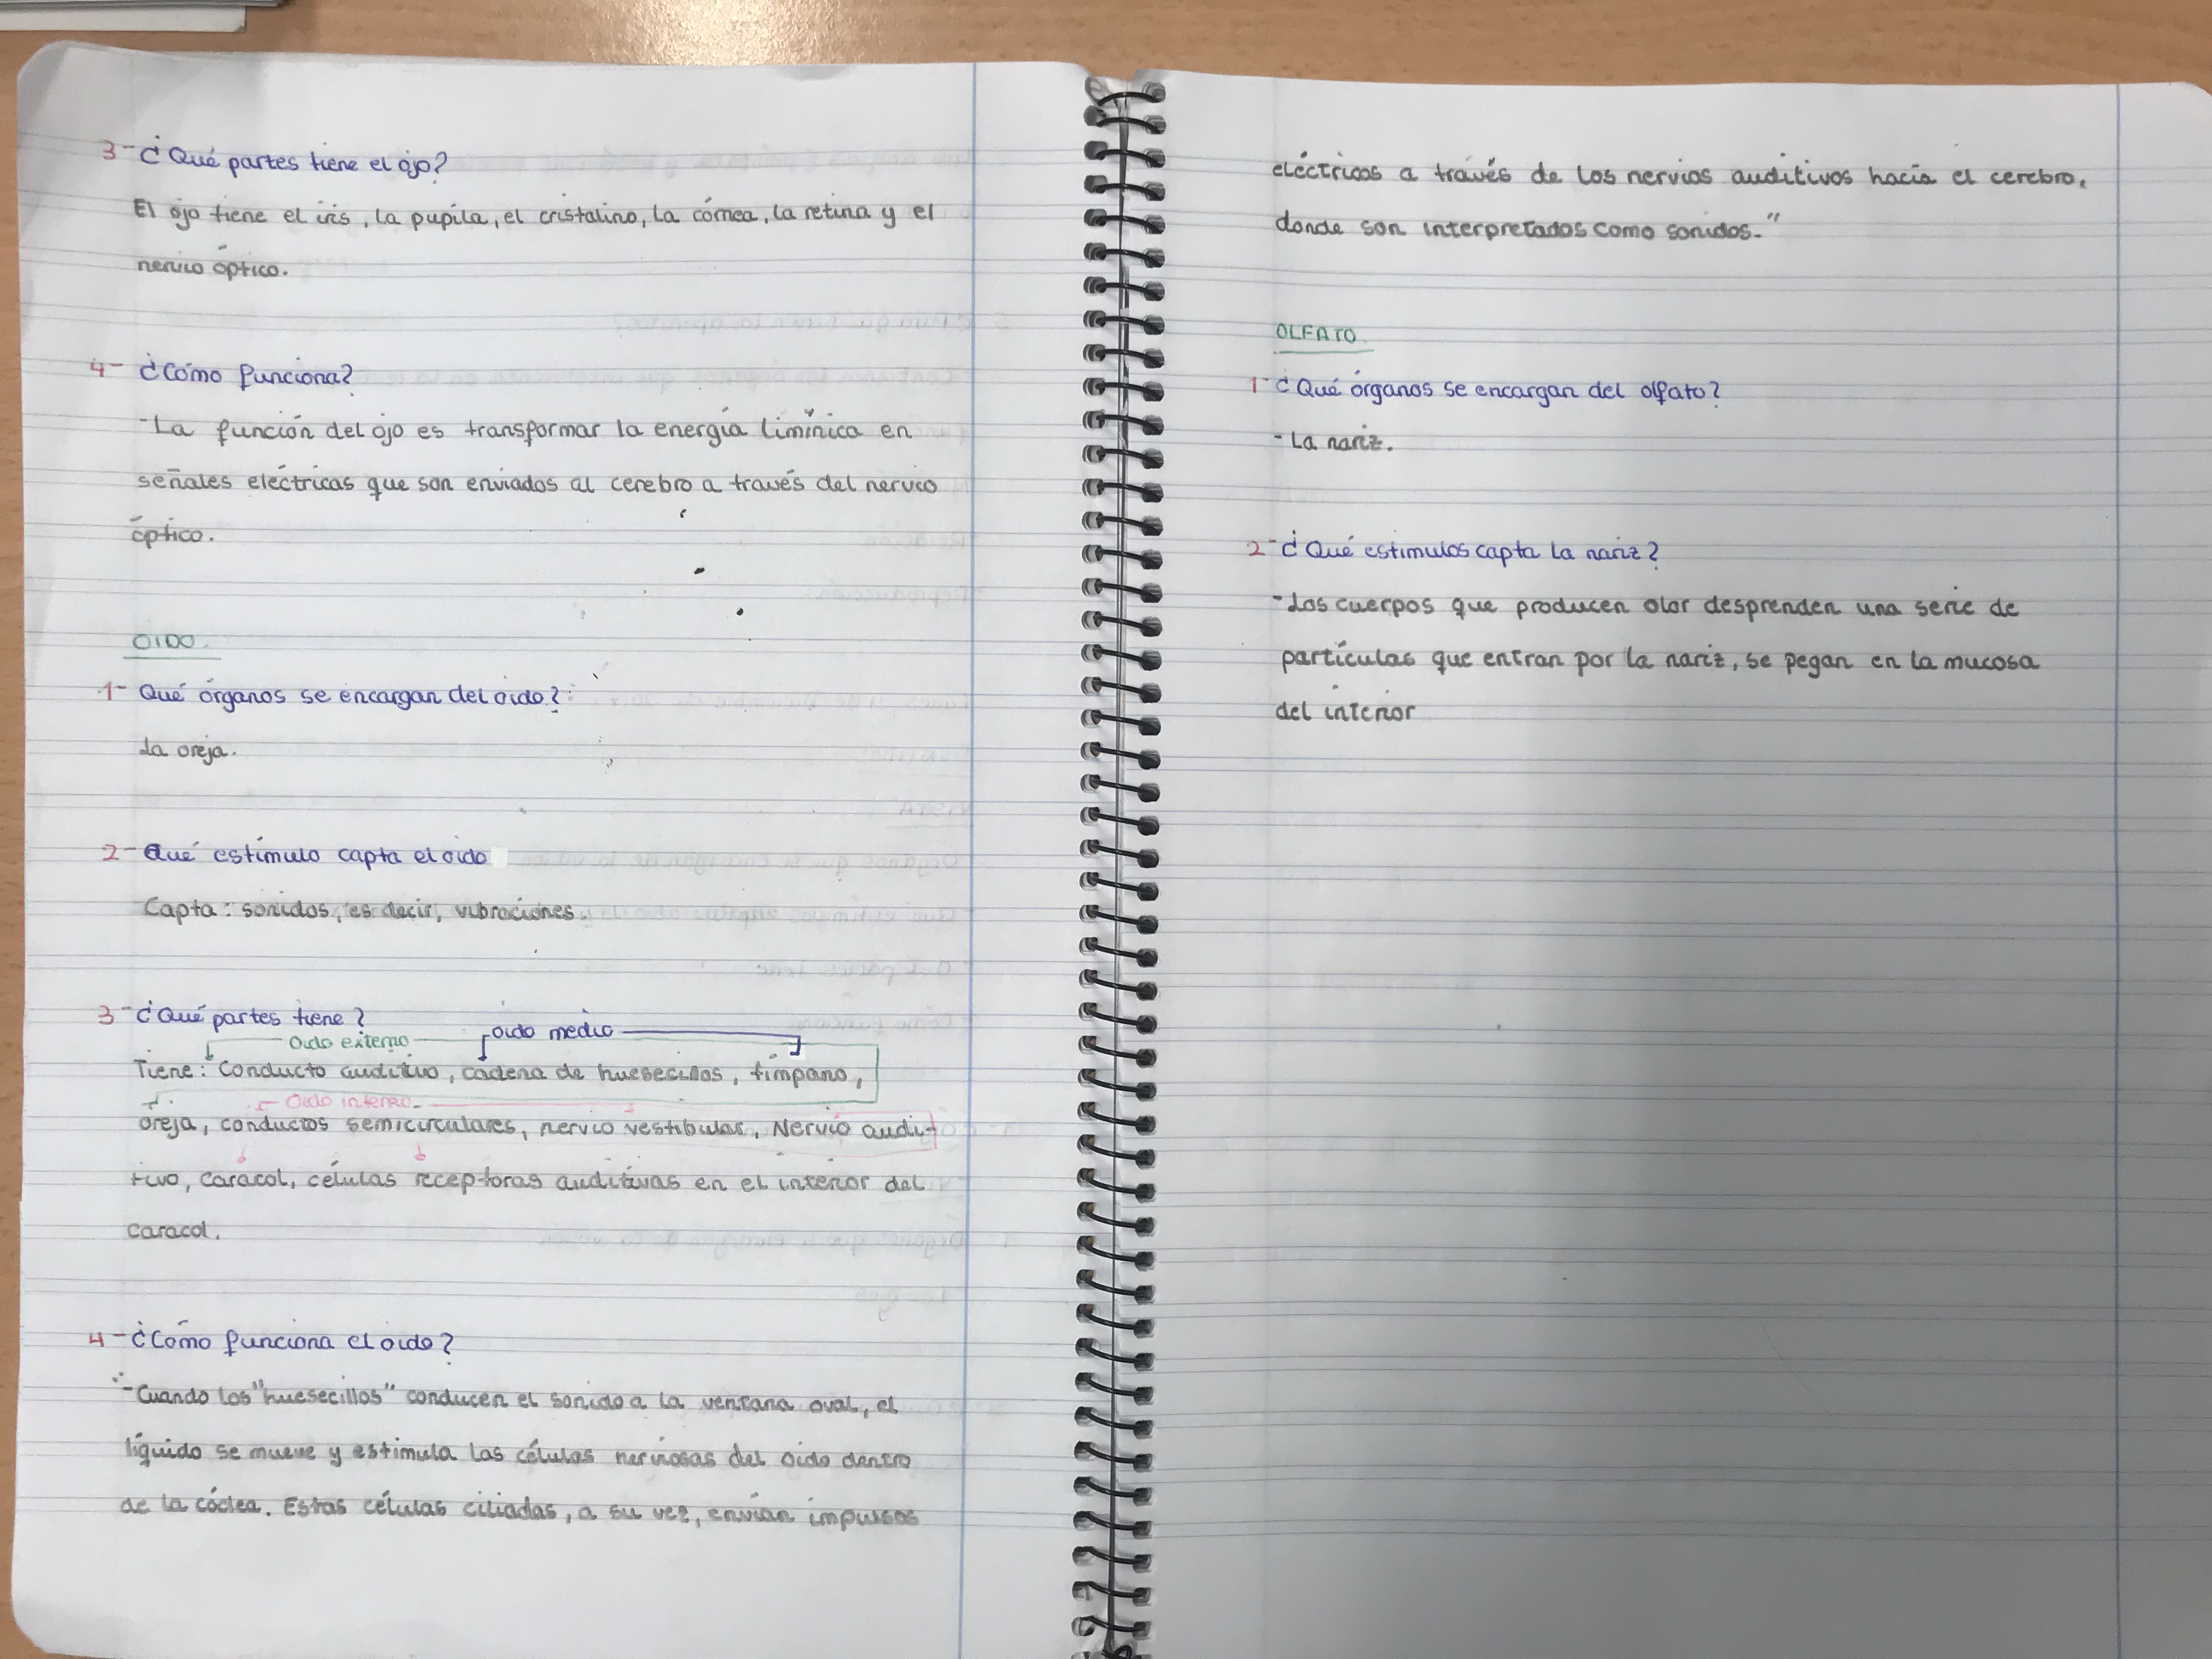 3- ¿Qué partes tiene el ojo?
El ojo tiene el iris, la pupila, el cristalino, la córnea, la retina y el
nervio óptico.
4- ¿Cómo funciona?
-La función del ojo es transformar la energía limínica en
señales eléctricas que son enviados al cerebro a través del nervio
óptico.
OIDO.
1- Qué órganos se encargan del oido?
La oreja.
2- Qué estímulo capta el oido
Capta: sonidos, es decir, vibraciones.
3- ¿Qué partes tiene?
Oido externo oido medio
Tiene: Conducto auditivo, cadena de huesecillos, tímpano,
Oido interno
oreja, conductos semicirculares, nervio vestibular, Nervio audi-
tivo, caracol, células receptoras auditivas en el interior del
caracol.
4- ¿Cómo funciona el oido?
-Cuando los "huesecillos" conducen el sonido a la ventana oval, el
líquido se mueve y estimula las células nerviosas del oido dentro
de la cóclea. Estas células ciliadas, a su vez, envían impulsos
eléctricos a través de los nervios auditivos hacia el cerebro,
donde son interpretados como sonidos."
OLFATO.
1- ¿Qué órganos se encargan del olfato?
- La nariz.
2- ¿Qué estimulos capta la nariz?
-Los cuerpos que producen olor desprenden una serie de
partículas que entran por la nariz, se pegan en la mucosa
del interior